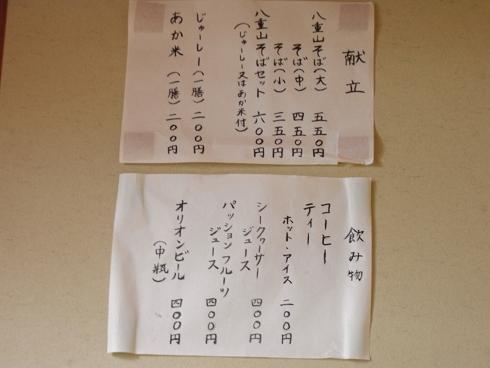 献立
八重山そば(大) 五五0円
そば(中) 四五0円
そば(小) 三五0円
八重山そばセット 六00円
(じゅーしー又はあか米付)
じゅーしー(一膳)二00円
あか米(一膳)二00円
飲み物
コーヒー
ティー
ホット・アイス 二00円
シークヮーサー
ジュース 四00円
パッションフルーツ
ジュース 四00円
オリオンビール 四00円
(中瓶)